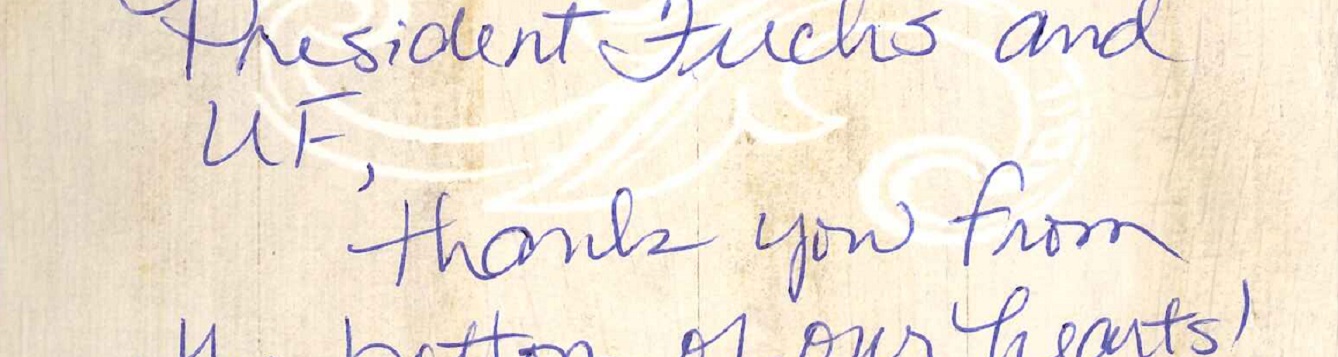 President Fuchs and
UF,
thank you from
the bottom of our hearts!